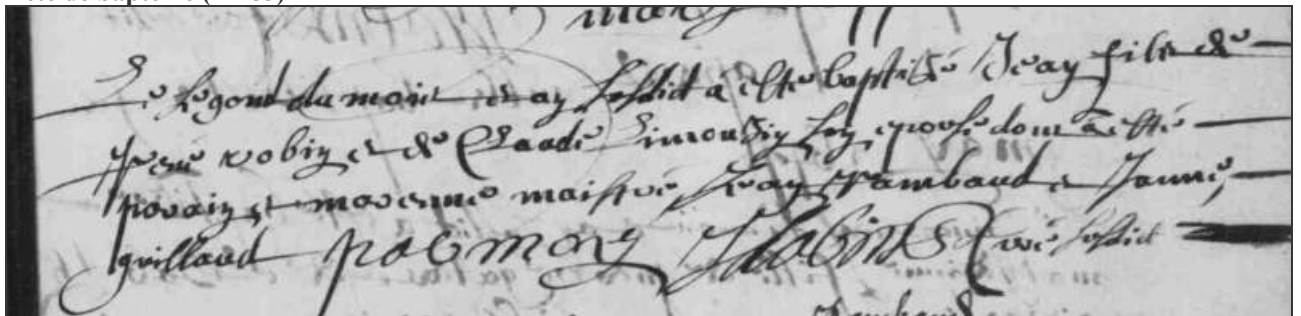 Le segond du mois et an susdict a este baptisé Jean filz de
Pierre robin et de Claude Limousin son epouse dont a esté
parain et marenne maistre Jean Rambaud et Janne
guillaud par moy curé susdict